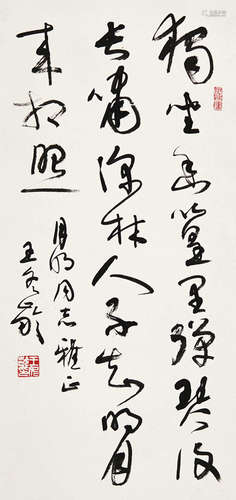 獨坐幽篁里彈琴復
長嘯深林人不知明月
来相照
月明同志雅正
王冬齡